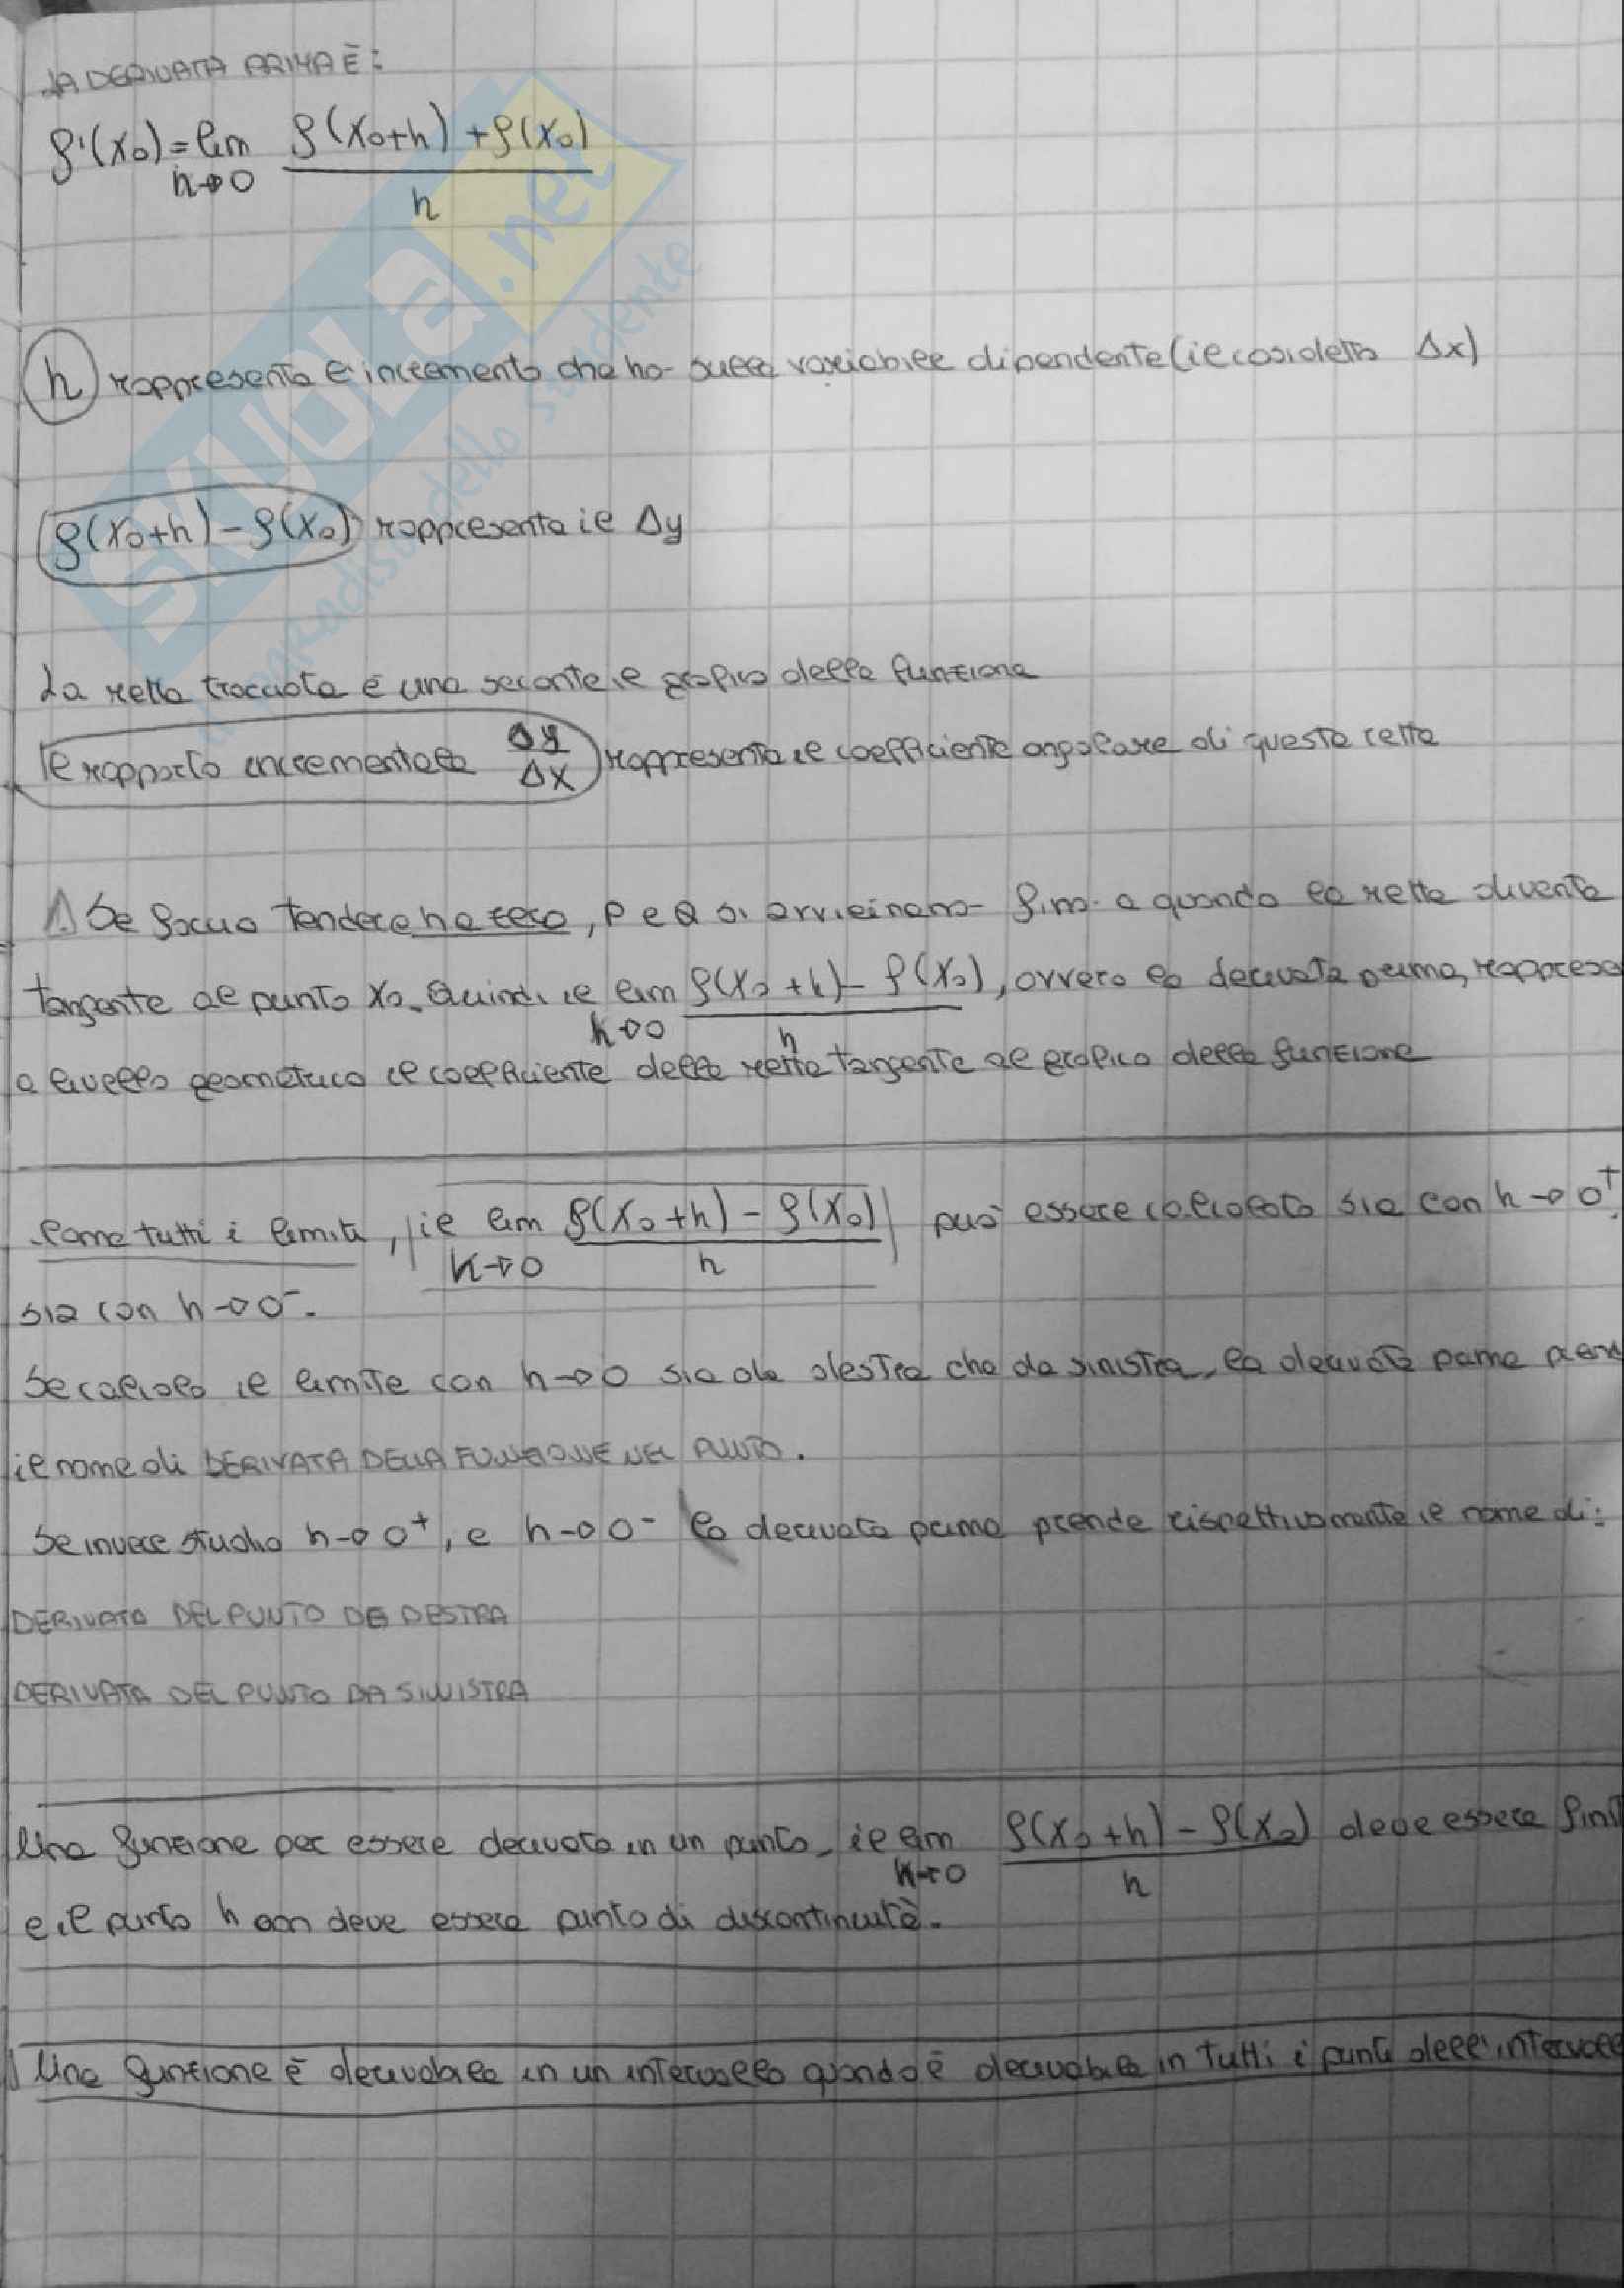 LA DERIVATA PRIMA È:
f'(x₀) = lim h→0 f(x₀+h) + f(x₀) / h
h rappresenta l'incremento che ho sulla variabile dipendente (il cosidetto Δx)
f(x₀+h) - f(x₀) rappresenta il Δy
La retta tracciata è una secante il grafico della funzione
Il rapporto incrementale Δy/Δx rappresenta il coefficiente angolare di questa retta
⚠ Se faccio tendere h a zero, P e Q si avvicinano fino a quando la retta diventa
tangente al punto x₀. Quindi il lim h→0 f(x₀+h) - f(x₀) / h, ovvero la derivata prima, rappresa
a livello geometrico il coefficiente della retta tangente al grafico della funzione
Come tutti i limiti, il lim h→0 f(x₀+h) - f(x₀) / h può essere calcolato sia con h→0⁺,
sia con h→0⁻.
Se calcolo il limite con h→0 sia da destra che da sinistra, la derivata prima prend
il nome di DERIVATA DELLA FUNZIONE NEL PUNTO.
Se invece studio h→0⁺, e h→0⁻ la derivata prima prende rispettivamente il nome di:
DERIVATA DEL PUNTO DA DESTRA
DERIVATA DEL PUNTO DA SINISTRA
Una funzione per essere derivata in un punto, il lim h→0 f(x₀+h) - f(x₀) / h deve essere finit
e il punto h non deve essere punto di discontinuità.
Una funzione è derivabile in un intervallo quando è derivabile in tutti i punti dell'intervall
SKUOLA.net
il paradiso dello studente